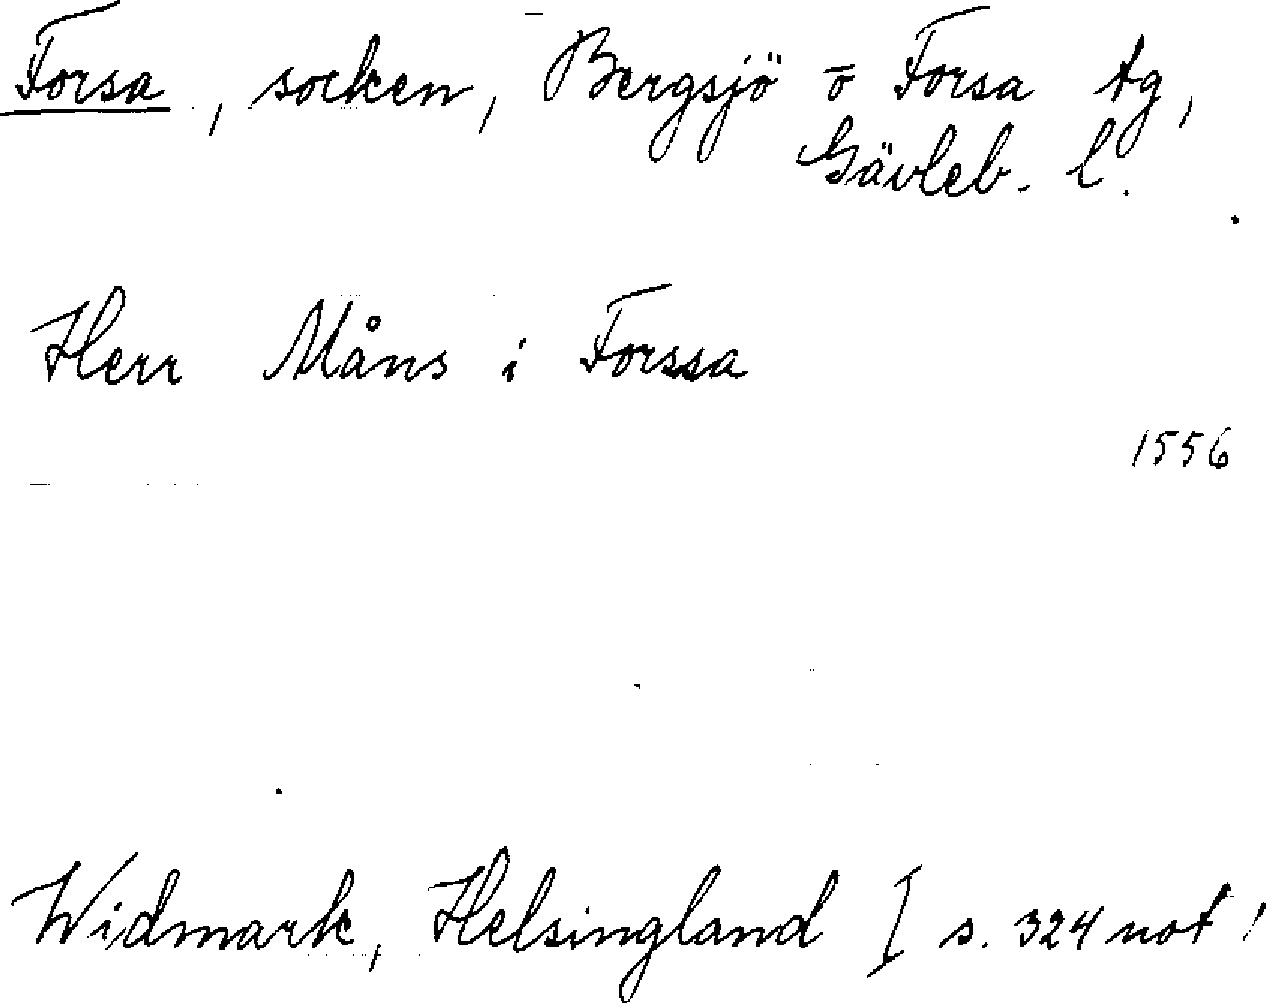 Forsa, socken, Bergsjö o Forsa tg,
Gävleb. l.
Herr Måns i Forssa
1556
Widmark, Helsingland I s. 324 not 1